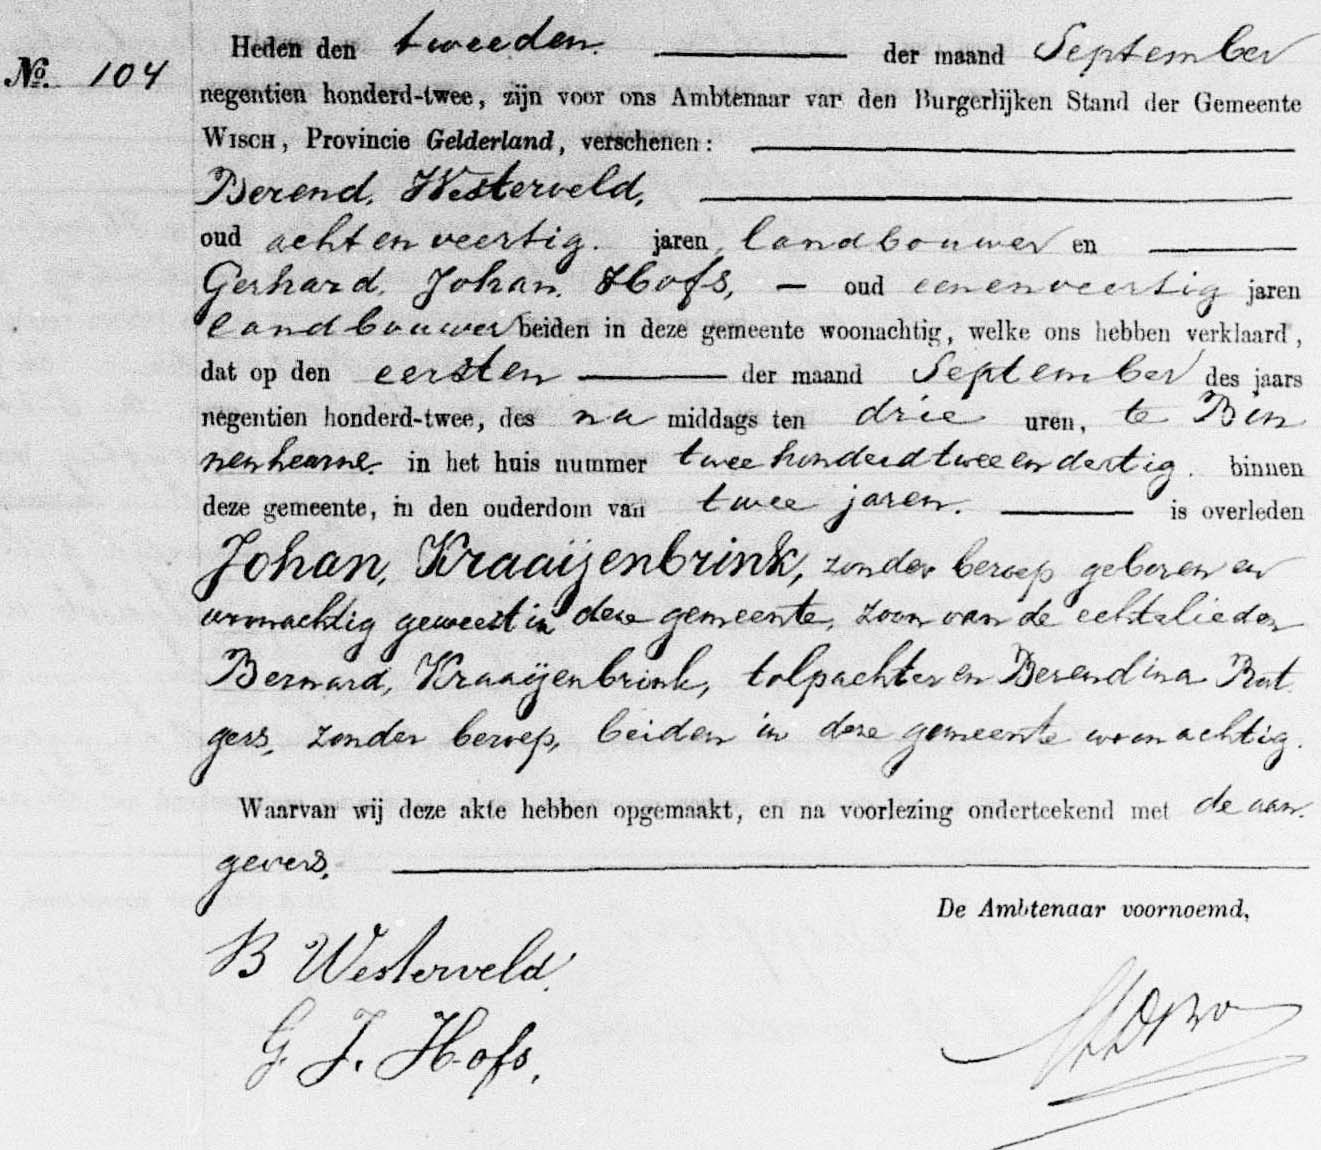 Heden den tweeden. der maand September
No. 104
negentien honderd-twee, zijn voor ons Ambtenaar van den Burgerlijken Stand der Gemeente
WISCH, Provincie Gelderland, verschenen:
Berend, Westerveld,
oud achtenveertig. jaren, landbouwer en
Gerhard, Johan, Hofs, — oud eenenveertig jaren
landbouwer beiden in deze gemeente woonachtig, welke ons hebben verklaard,
dat op den eersten der maand September des jaars
negentien honderd-twee, des na middags ten drie uren, te Bin
nenheurne, in het huis nummer tweehonderdtweeendertig. binnen
deze gemeente, in den ouderdom van twee jaren. is overleden
Johan, Kraaijenbrink, zonder beroep geboren en
woonachtig geweest in deze gemeente, zoon van de echtelieden
Bernard, Kraaijenbrink, tolpachter en Berendina Rut
gers, zonder beroep, beiden in deze gemeente woonachtig.
Waarvan wij deze akte hebben opgemaakt, en na voorlezing onderteekend met de aan
gevers.
De Ambtenaar voornoemd,
B Westerveld.
G. J. Hofs.